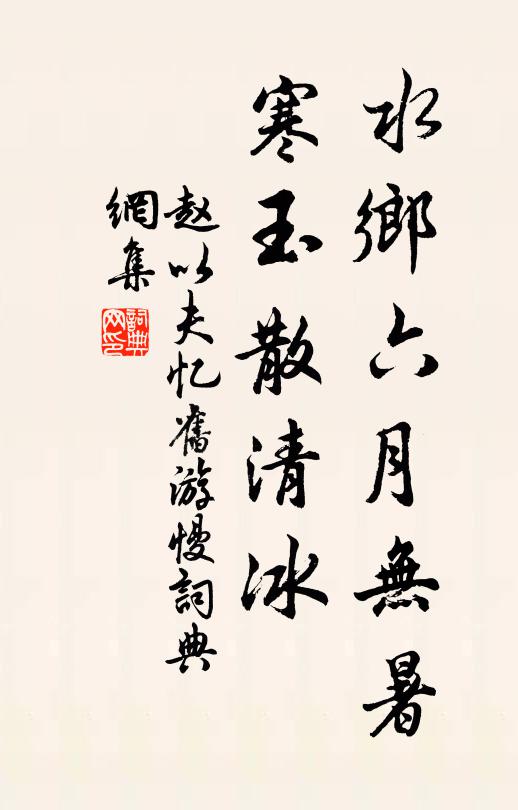 水鄉六月無暑
寒玉散清冰
赵以夫忆舊游慢詞典
網集
詞典網印